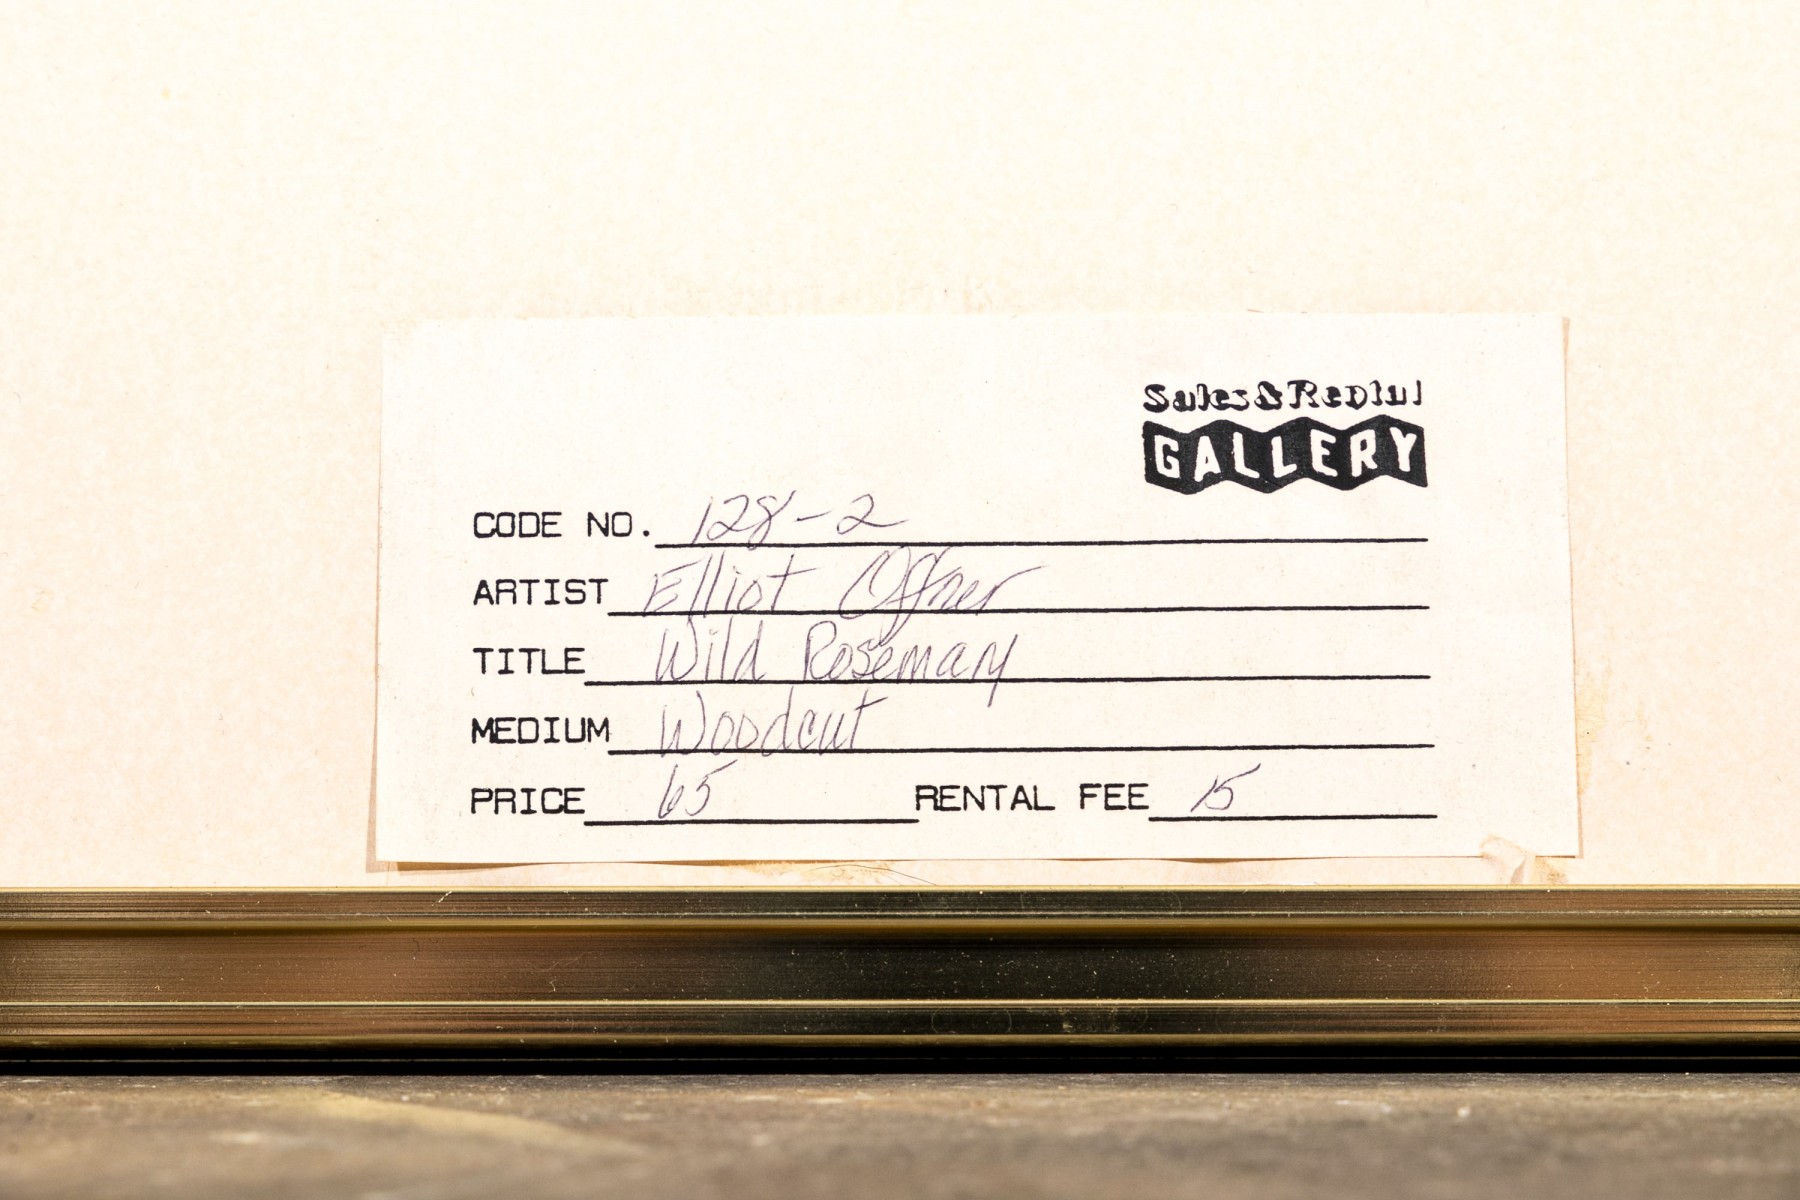 Sales & Rental
GALLERY
CODE NO. 128-2
ARTIST Elliot Offner
TITLE Wild Rosemary
MEDIUM Woodcut
PRICE 65 RENTAL FEE 15